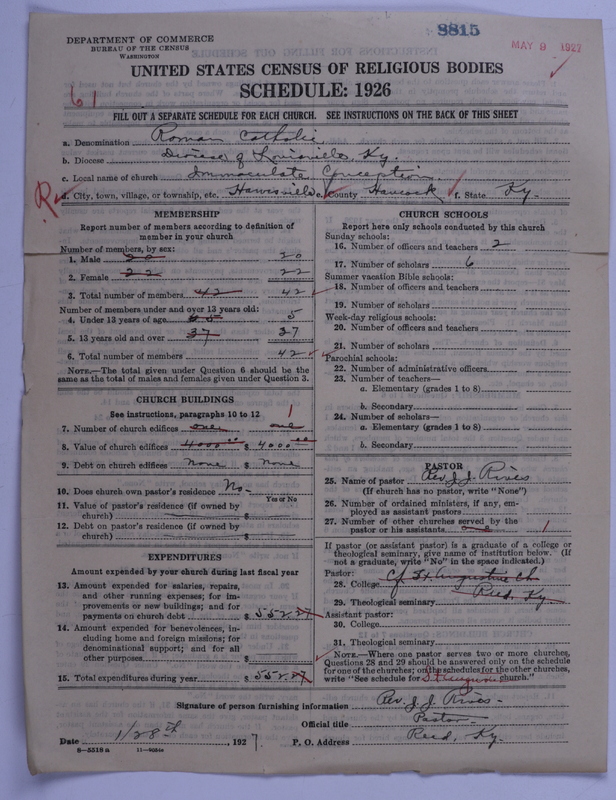 8815
DEPARTMENT OF COMMERCE
BUREAU OF THE CENSUS
WASHINGTON
MAY 9 1927
UNITED STATES CENSUS OF RELIGIOUS BODIES
SCHEDULE: 1926
61
FILL OUT A SEPARATE SCHEDULE FOR EACH CHURCH. SEE INSTRUCTIONS ON THE BACK OF THIS SHEET
a. Denomination Roman Catholic
b. Diocese Diocese of Louisville, Ky.
c. Local name of church Immaculate Conception
R
d. City, town, village, or township, etc. Hawesville e. County Hancock f. State Ky.
MEMBERSHIP
Report number of members according to definition of
member in your church
Number of members, by sex:
1. Male 20 20
2. Female 22 22
3. Total number of members 42 42
Number of members under and over 13 years old:
4. Under 13 years of age 5
5. 13 years old and over 37 37
6. Total number of members 42
NOTE.—The total given under Question 6 should be the
same as the total of males and females given under Question 3.
CHURCH BUILDINGS
See instructions, paragraphs 10 to 12
1
7. Number of church edifices one one
8. Value of church edifices 4000.00 $ 4000.00
9. Debt on church edifices None $ None
10. Does church own pastor's residence No-
Yes or No
11. Value of pastor's residence (if owned by
church) $
12. Debt on pastor's residence (if owned by
church) $
EXPENDITURES
Amount expended by your church during last fiscal year
13. Amount expended for salaries, repairs,
and other running expenses; for im-
provements or new buildings; and for
payments on church debt $ 552.37
14. Amount expended for benevolences, in-
cluding home and foreign missions; for
denominational support; and for all
other purposes $
15. Total expenditures during year $ 552.37
CHURCH SCHOOLS
Report here only schools conducted by this church
Sunday schools:
16. Number of officers and teachers 2
17. Number of scholars 6
Summer vacation Bible schools:
18. Number of officers and teachers
19. Number of scholars
Week-day religious schools:
20. Number of officers and teachers
21. Number of scholars
Parochial schools:
22. Number of administrative officers
23. Number of teachers—
a. Elementary (grades 1 to 8)
b. Secondary
24. Number of scholars—
a. Elementary (grades 1 to 8)
b. Secondary
PASTOR
25. Name of pastor Rev. J. J. Rives
(If church has no pastor, write "None")
26. Number of ordained ministers, if any, em-
ployed as assistant pastors
27. Number of other churches served by the
pastor or his assistants one 1
If pastor (or assistant pastor) is a graduate of a college or
theological seminary, give name of institution below. (If
not a graduate, write "No" in the space indicated.)
Pastor:
28. College Cf St. Augustine Ch
29. Theological seminary Reed, Ky.
Assistant pastor:
30. College
31. Theological seminary
NOTE.—Where one pastor serves two or more churches,
Questions 28 and 29 should be answered only on the schedule
for one of the churches; on the schedules for the other churches,
write "See schedule for St. Augustine church."
Signature of person furnishing information Rev. J. J. Rives-
Official title Pastor
Date 1/28th, 1927. P. O. Address Reed, Ky.
8—5518a 11—9364